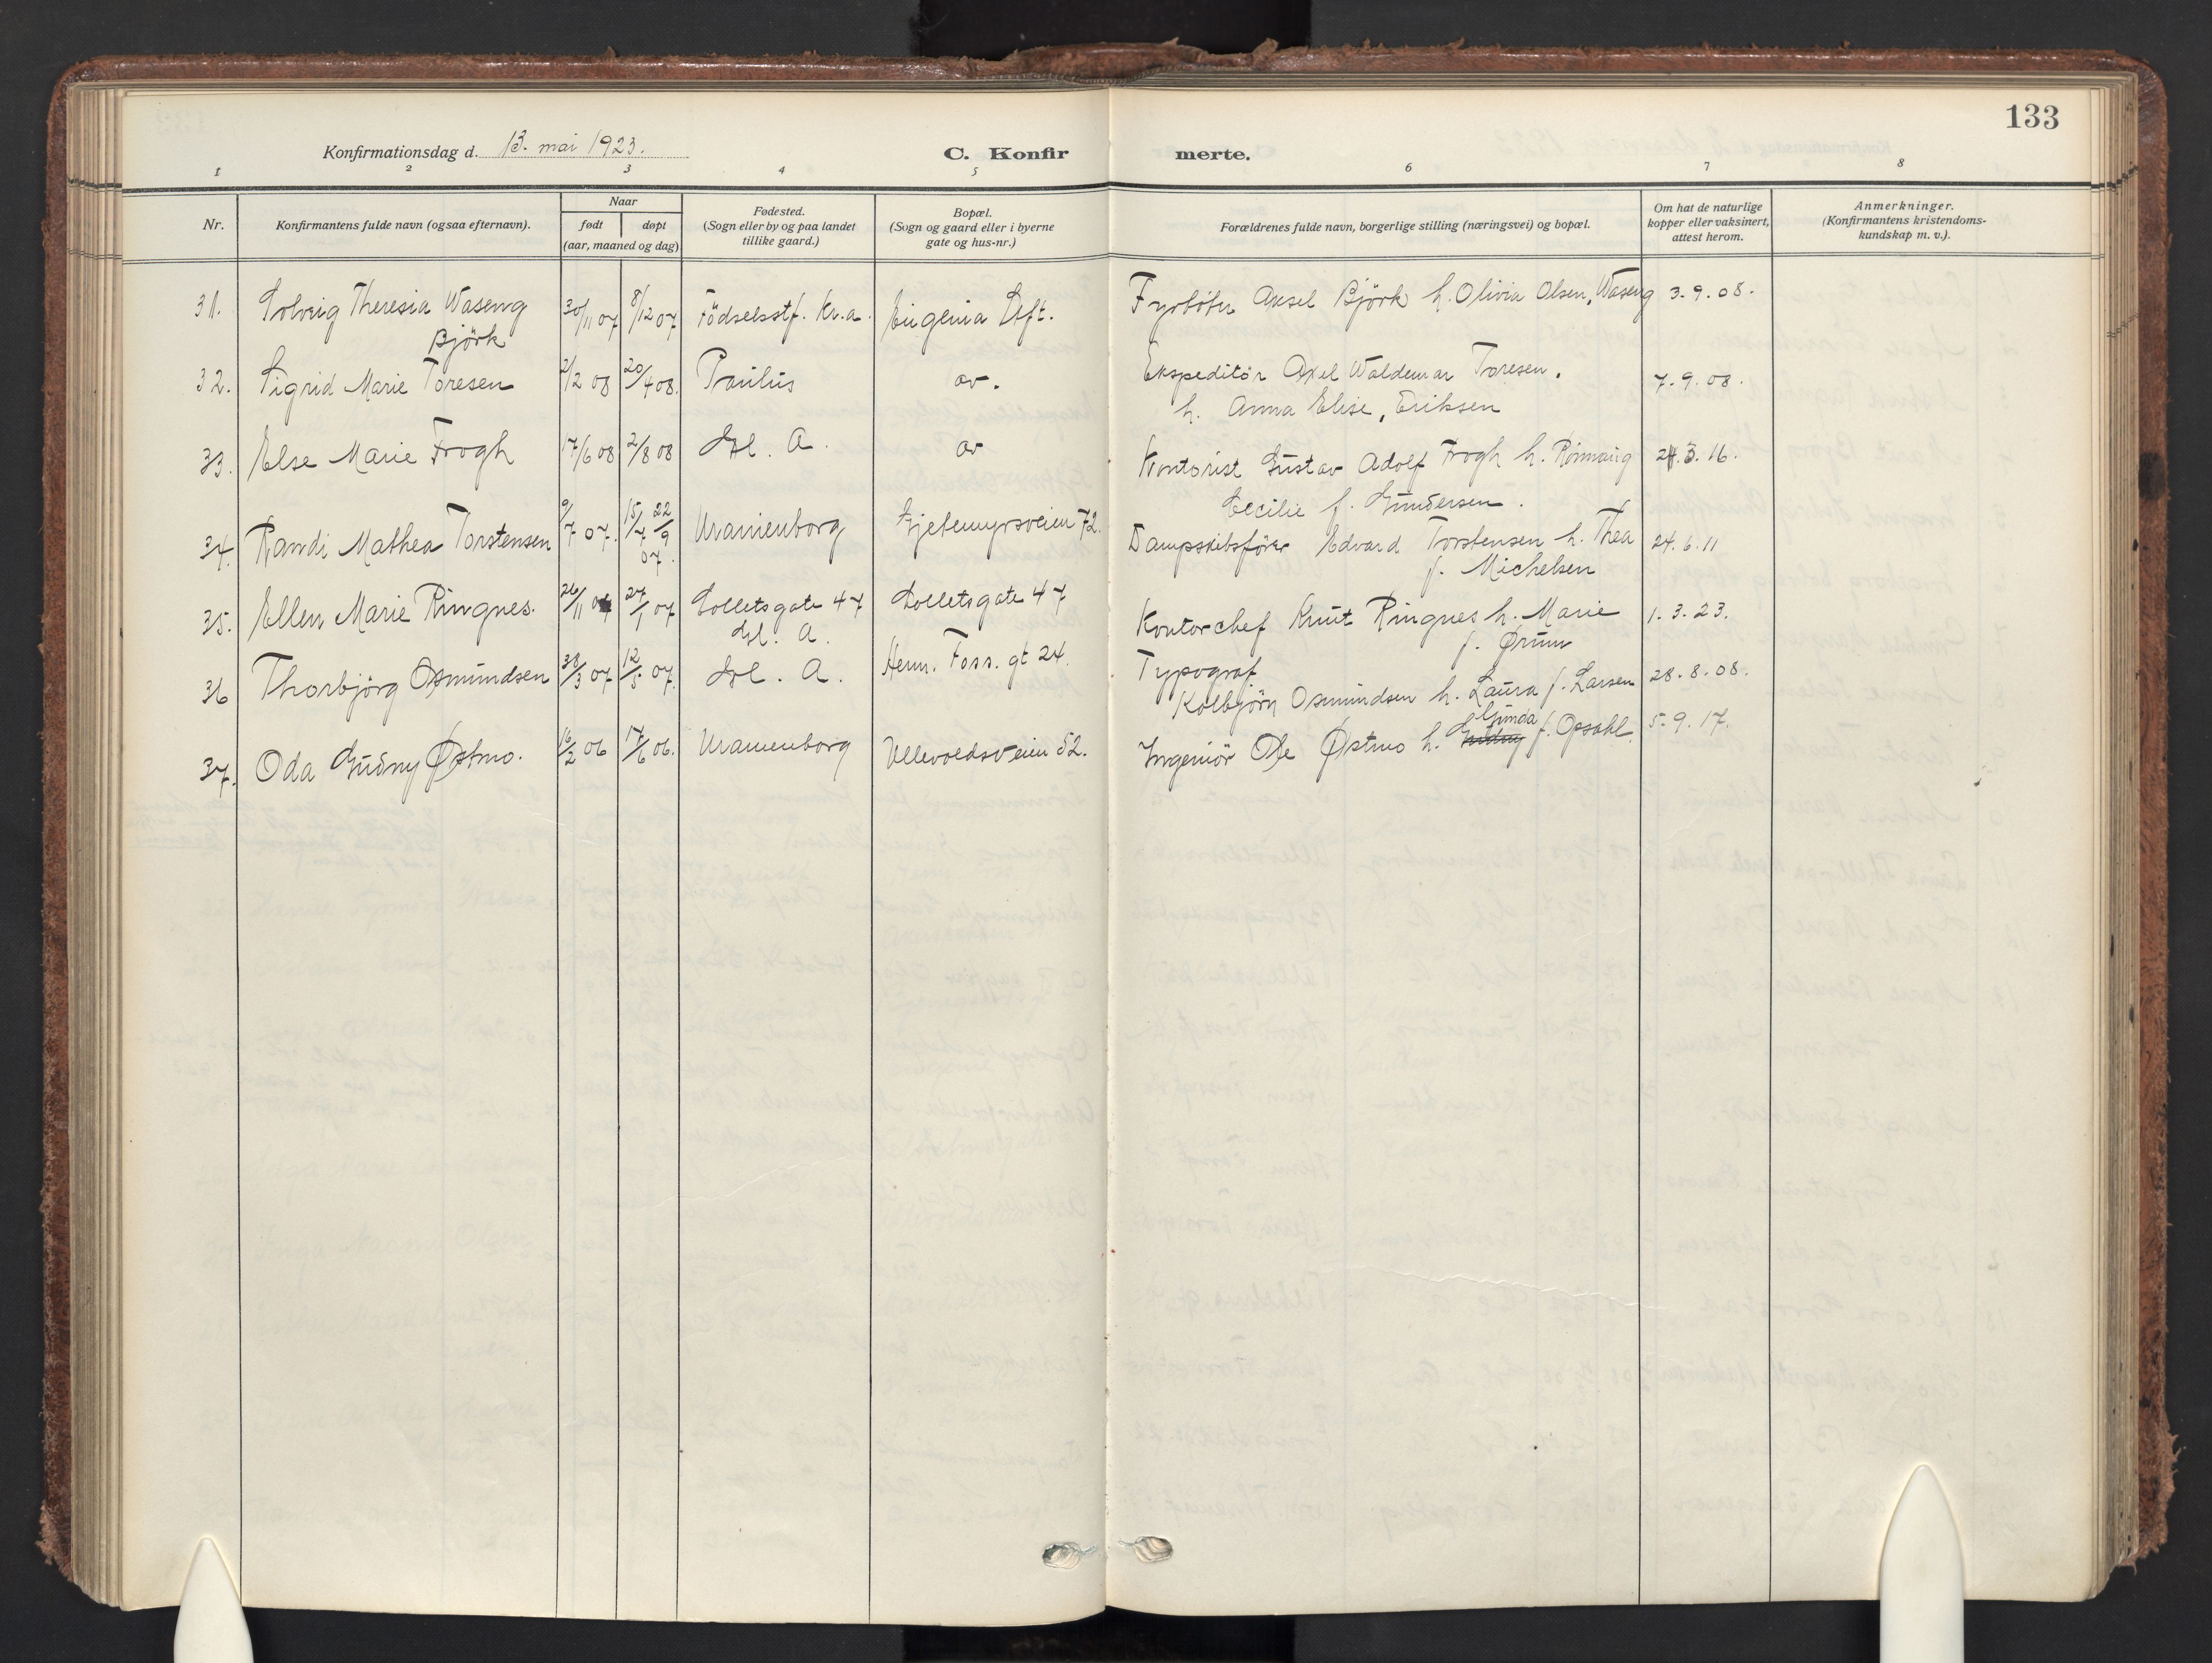 133
Konfirmationsdag d. 13. mai 1923.
C. Konfirmerte.
1 2 3 4 5 6 7 8
Nr.
Konfirmantens fulde navn (ogsaa efternavn).
Naar
født
døpt
(aar, maaned og dag)
Fødested.
(Sogn eller by og paa landet
tillike gaard.)
Bopæl.
(Sogn og gaard eller i byerne
gate og hus-nr.)
Forældrenes fulde navn, borgerlige stilling (næringsvei) og bopæl.
Om hat de naturlige
kopper eller vaksinert,
attest herom.
Anmerkninger.
(Konfirmantens kristendoms-
kundskap m. v.).
31. Solveig Theresia Waseng 30/11 07 8/12 07 Födselsstf. Kr.a. Eugenia Stft. Fyrböter Aksel Björk h. Olivia Olsen, Waseng 3.9.08.
Björk
32. Sigrid Marie Toresen 2/2 08 20/4 08. Paulus av. Ekspeditör Axel Waldemar Toresen. 7.9.08.
h. Anna Elise, Eriksen
33. Else Marie Frogh 17/6 08 2/8 08 Gl. A. av Kontorist Gustav Adolf Frogh h. Rönnaug 24.3.16.
Cecilie f. Gundersen.
34. Randi Mathea Torstensen 9/7 07. 15/7 22/9 07. Uranienborg Gjetemyrsveien 72. Dampskibsförer Edvard Torstensen h. Thea 24.6.11
f. Michelsen
35. Ellen Marie Ringnes. 26/11 27/1 07 Colletsgate 47 Colletsgate 47 Kontorchef Knut Ringnes h. Marie 1.3.23.
Gl. A. f. Ørum
36 Thorbjörg Osmundsen 30/3 07 12/5 07. Gl. A. Herm. Foss. gt 24. Typograf
Kolbjörn Osmundsen h. Laura f. Larsen 28.8.08.
37. Oda Gudny Østmo. 16/2 06 17/6 06. Uranienborg Ullevoldsveien 52. Ingeniör Ole Østmo h. Gudny Gunda f. Opsahl. 5.9.17.